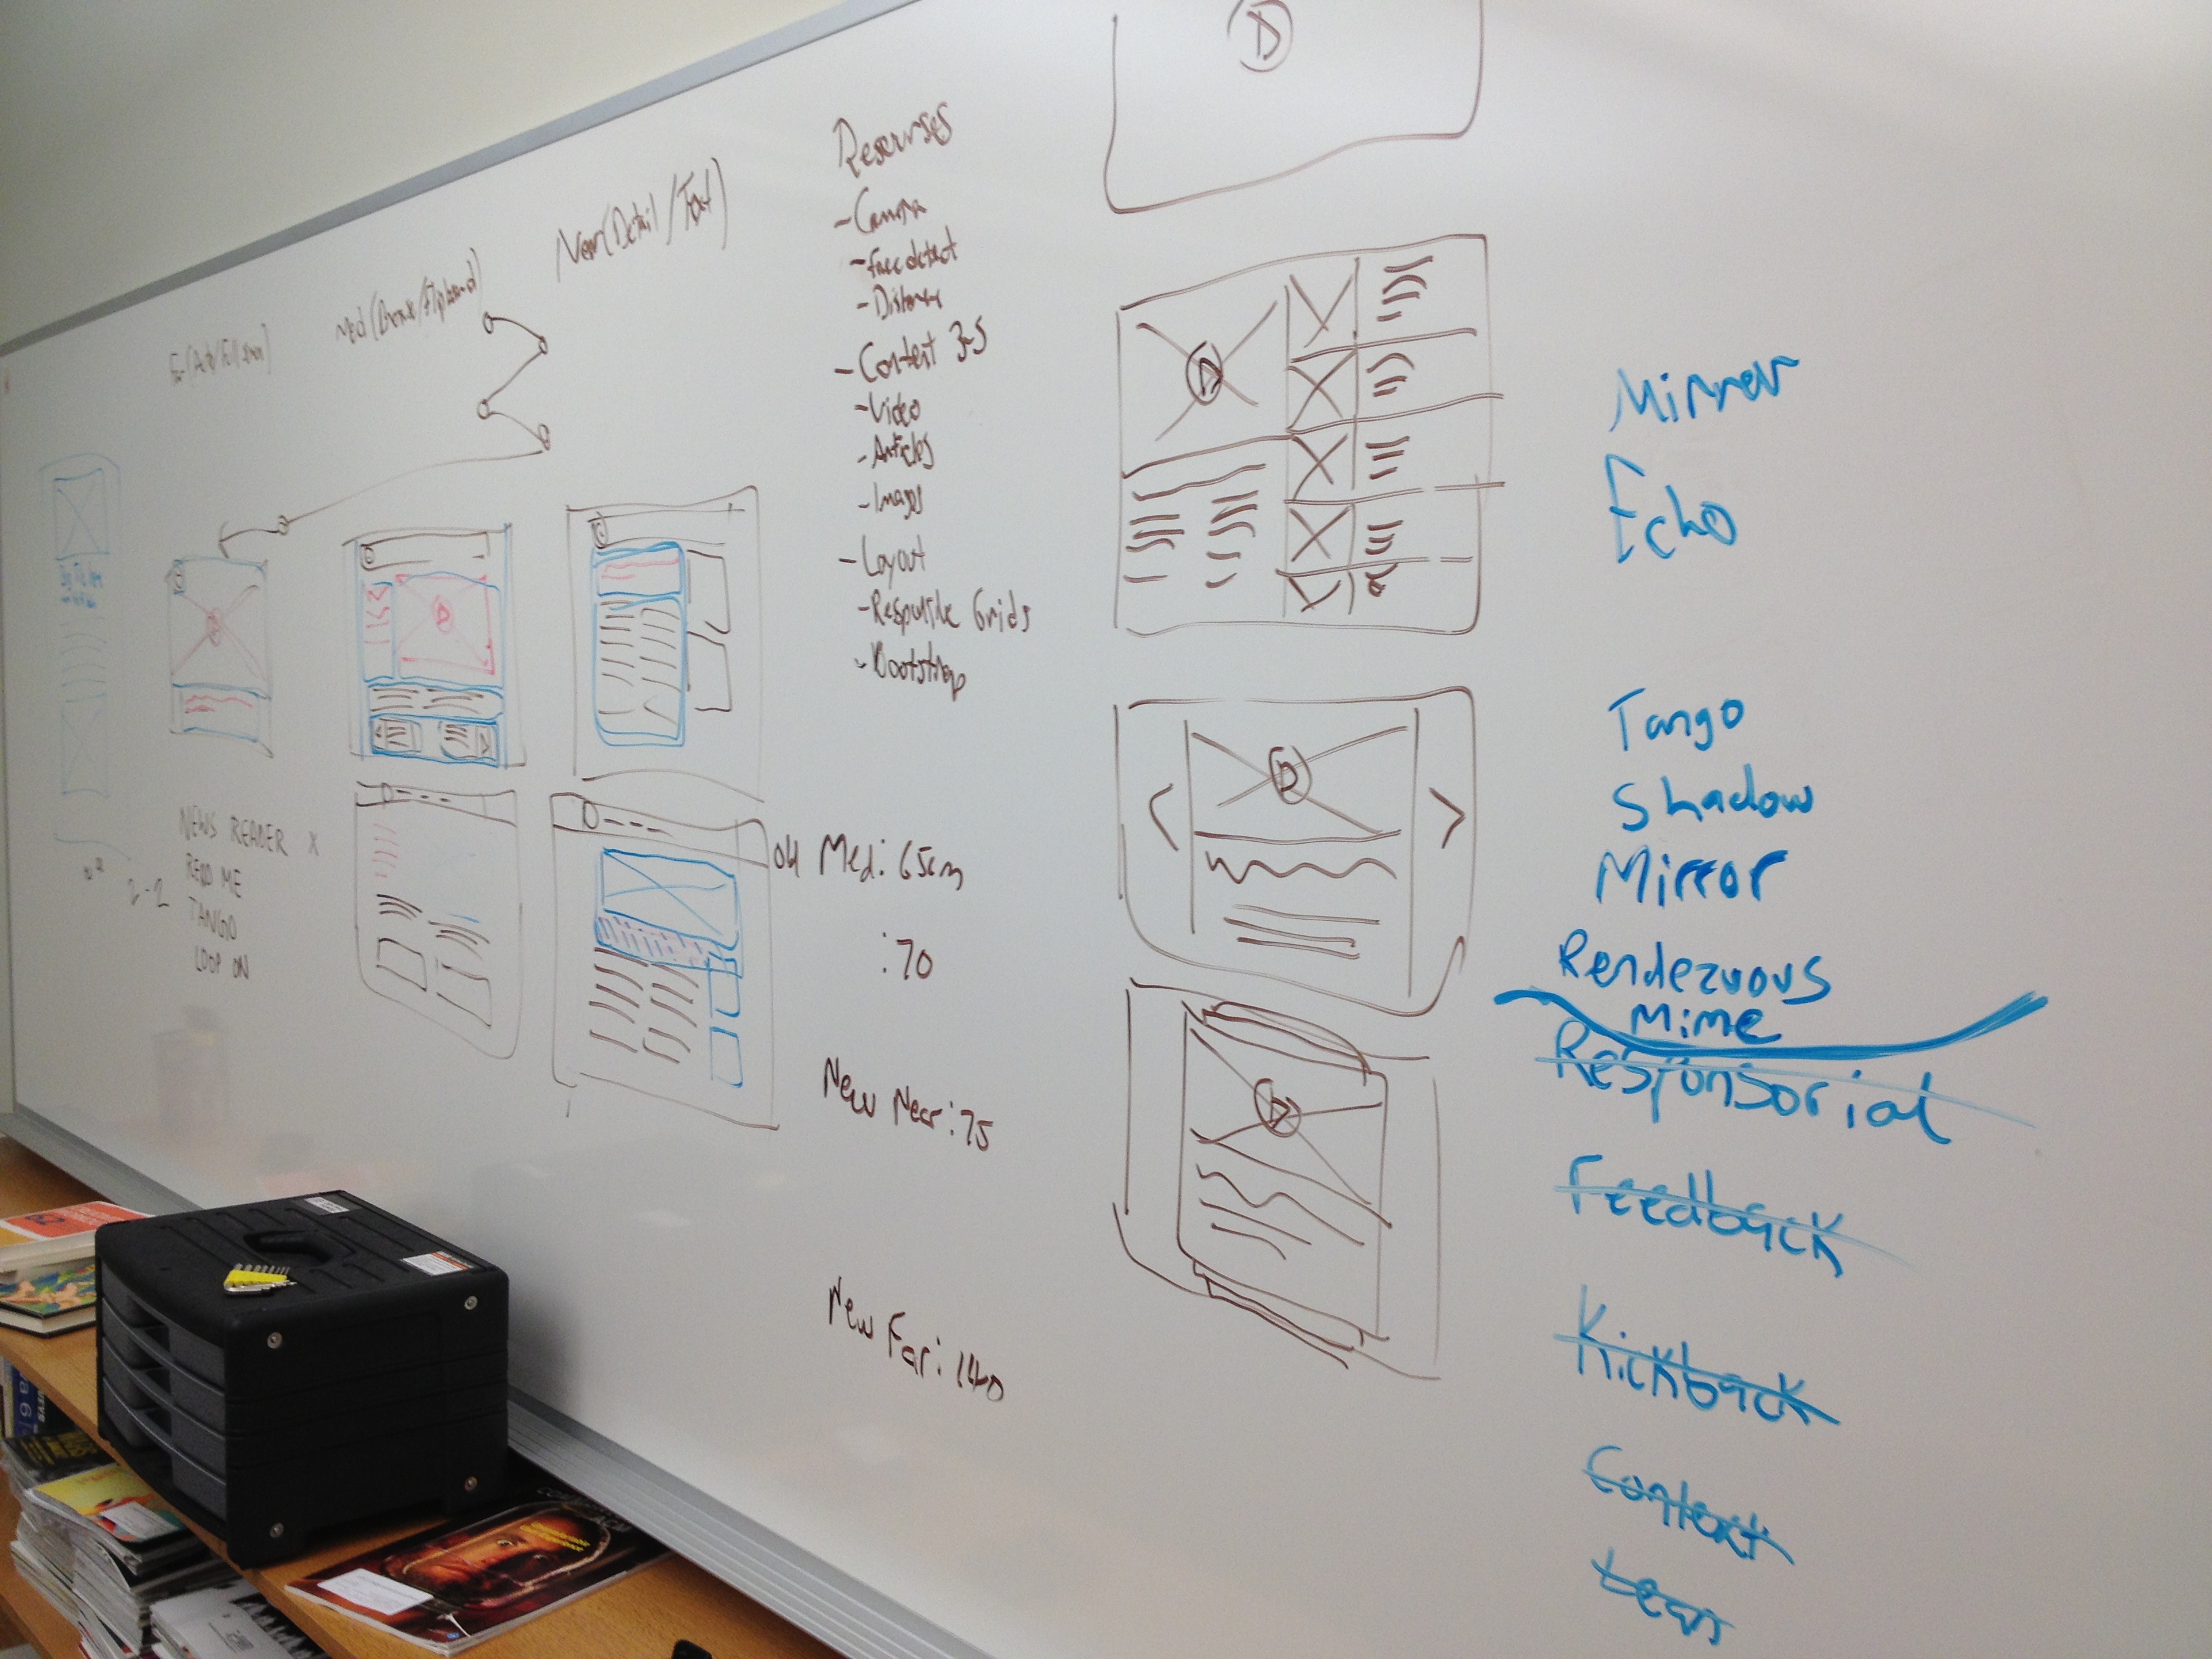 Near (Detail/Text)
Resourses
- Camera
- face detect
- Distance
- Content 3-5
- Video
- Articles
- Images
- Layout
- Responsive Grids
- Bootstrap
NEWS READER X
READ ME
TANGO
LOOP ON
2-2
Old Med: 65cm
: 70
New Near: 75
New Far: 140
Mirrer
Echo
Tango
Shadow
Mirror
Rendezvous
Mime
Responsorial
Feedback
Kickback
Context